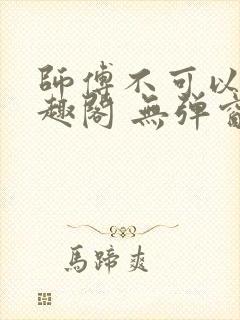 師傅不可以
趣閣 無弹
馬蹄爽